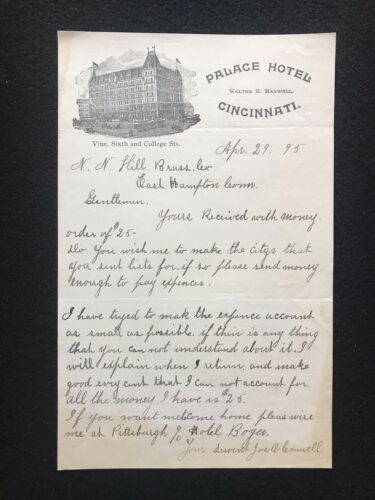 PALACE HOTEL
WALTER H. MAXWELL.
CINCINNATI.
Vine, Sixth and College Sts.
Apr. 29. 95
N. N. Hill, Brass. Co
East Hampton Conn.
Gentlemen.
Yours Received with money.
order of $25-
Do you wish me to make the citys that
you sent lists for. if so please send money
enough to pay expences.
I have tryed to make the expence account
as small us possible. if thir is any thing
that you can not understand about it. I
will explain when I return, and make
good evry cent that I can not account for
all the money I have is $25.
If you want me come home pleas wire
me at Pittsburgh c/o Hotel Boyer.
Your Servent Joe